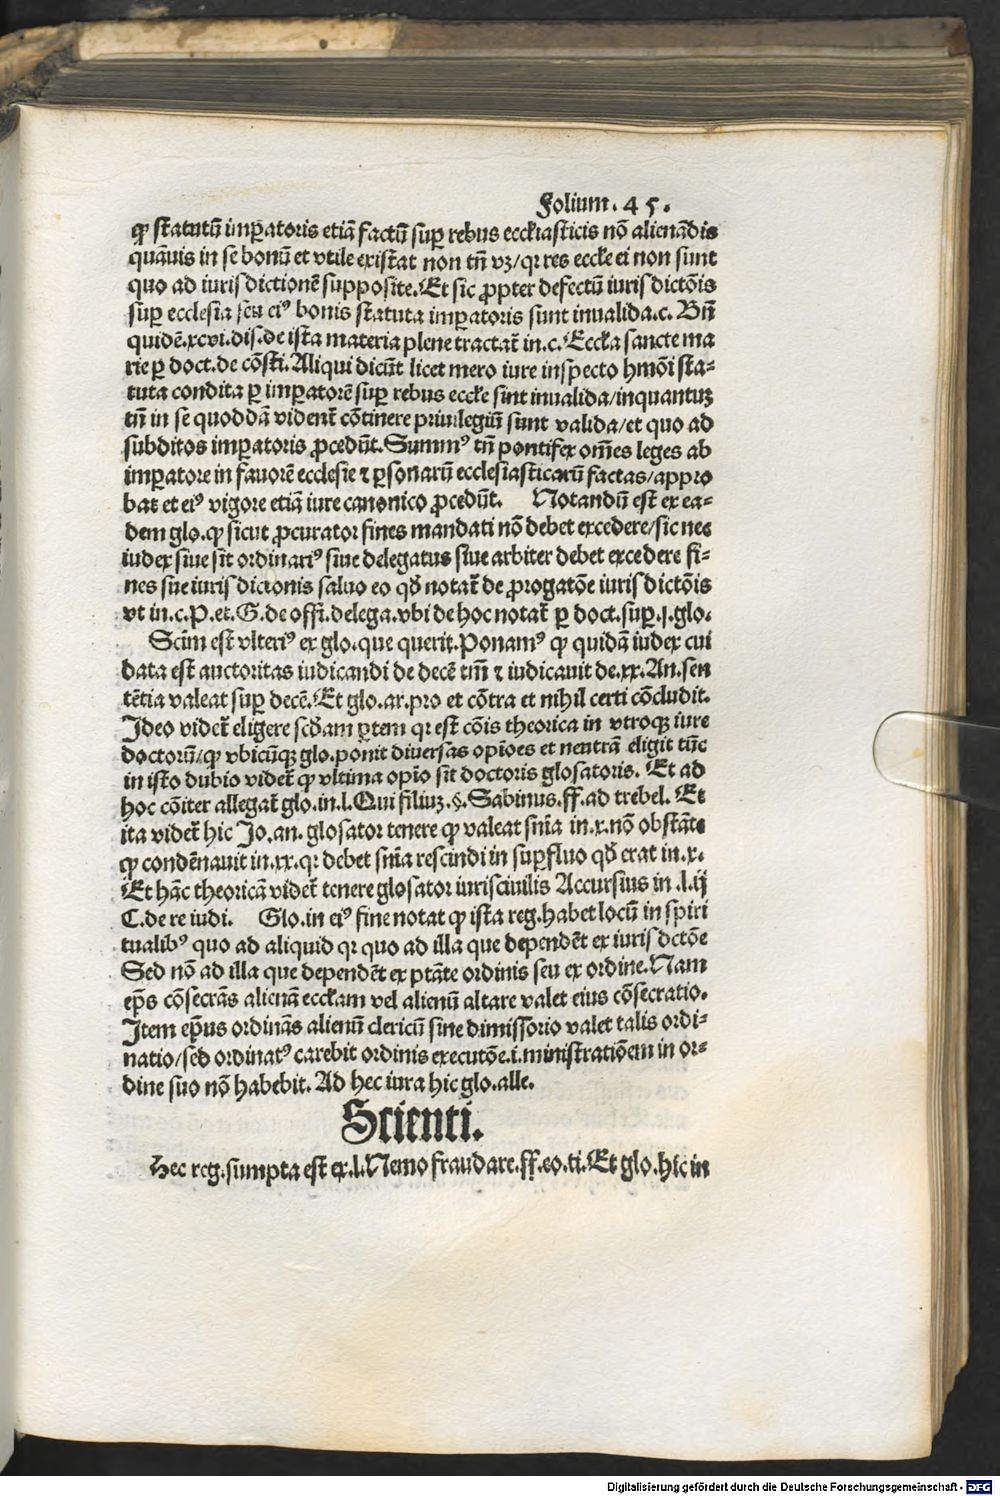 Folium. 4 5.
ꝙ statutū imꝑatoris etiā factū suꝑ rebus ecclꝛiasticis nō alienādis
quāuis in se bonū et vtile existat non tn̄ vꝫ/qꝛ res eccl̄e ei non sunt
quo ad iurisdictionē supposite. Et sic ꝓpter defectū iurisdictōis
suꝑ ecclesia seu eiꝰ bonis statuta imꝑatoris sunt inualida. c. Bn̄
quidē. xcvi. dis. de ista materia plene tractat̄ in. c. Eccl̄a sancte ma
rie ꝑ doct. de cōsti. Aliqui dicūt licet mero iure inspecto hmōi sta⸗
tuta condita ꝑ imꝑatorē suꝑ rebus eccl̄e sint inualida/inquantuꝫ
tn̄ in se quoddā vident̄ cōtinere priuilegiū sunt valida/et quo ad
subditos imꝑatoris ꝓcedūt. Summꝰ tn̄ pontifex om̄es leges ab
imꝑatore in fauorē ecclesie ⁊ ꝑsonarū ecclesiasticarū factas/appro
bat et eiꝰ vigore etiā iure canonico ꝓcedūt. Notandū est ex ea⸗
dem glo. ꝙ sicut ꝓcurator fines mandati nō debet excedere/sic nec
iudex siue sit ordinariꝰ siue delegatus siue arbiter debet excedere fi⸗
nes sue iurisdictionis saluo eo qd̄ notat̄ de ꝓrogatōe iurisdictōis
vt in. c. P. et. G. de offi. delega. vbi de hoc notat̄ ꝑ doct. suꝑ. j. glo.
Sciīn est vlteriꝰ ex glo. que querit. Ponamꝰ ꝙ quidā iudex cui
data est auctoritas iudicandi de decē tm̄ ⁊ iudicauit de. xx. An. sen
tētia valeat suꝑ decē. Et glo. ar. pro et cōtra et nihil certi cōcludit.
Ideo videt̄ eligere scd̄am ꝑtem qꝛ est cōis theorica in vtroqꝫ iure
doctorū/ꝙ vbicūqꝫ glo. ponit diuersas opiōes et neutrā eligit tūc
in isto dubio videt̄ ꝙ vltima opiō sit doctoris glosatoris. Et ad
hoc cōiter allegat̄ glo. in. l. Qui filiuꝫ. §. Sabinus. ff. ad trebel. Et
ita videt̄ hic Jo. an. glosator tenere ꝙ valeat sn̄ia in. x. nō obstāte
ꝙ condēnauit in. xx. qꝛ debet sn̄ia rescindi in suꝑfluo qd̄ erat in. x.
Et hāc theoricā videt̄ tenere glosator iuris ciuilis Accursius in. l. ij
C. de re iudi. Glo. in eiꝰ fine notat ꝙ ista reg. habet locū in spiri
tualibꝰ quo ad aliquid qꝛ quo ad illa que dependēt ex iurisdctōe
Sed nō ad illa que dependēt ex ptāte ordinis seu ex ordine. Nam
ep̄s cōsecrās alienā eccl̄am vel alienū altare valet eius cōsecratio.
Item ep̄us ordinās alienū clericū sine dimissorio valet talis ordi⸗
natio/sed ordinatꝰ carebit ordinis executōe. i. ministrationē̄m in or⸗
dine suo nō habebit. Ad hec iura hic glo. alle.
Scienti.
Hec reg. sumpta est ex. l. Nemo fraudare. ff. eo. ti. Et glo. hic in
Digitalisierung gefördert durch die Deutsche Forschungsgemeinschaft - DFG